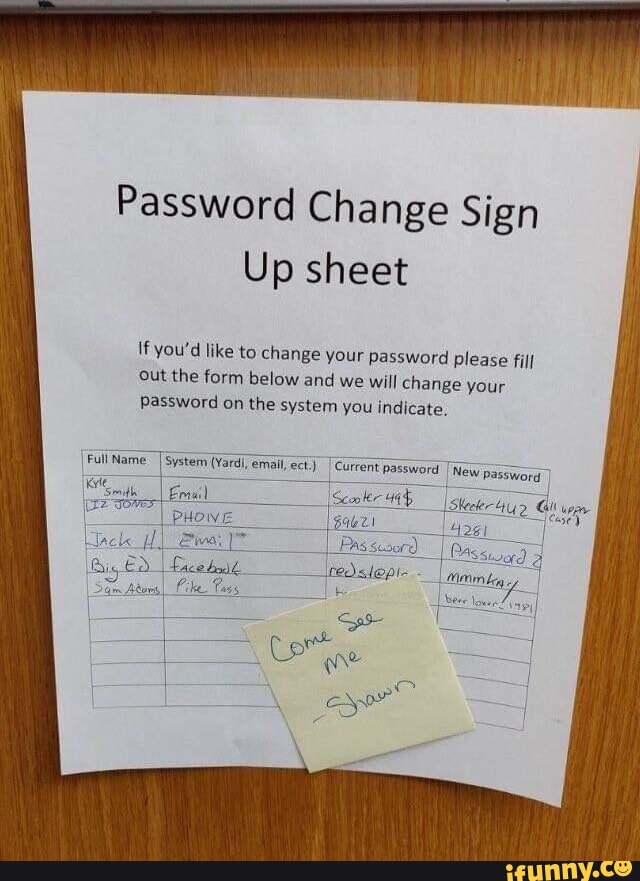 Password Change Sign
Up sheet
If you'd like to change your password please fill
out the form below and we will change your
password on the system you indicate.
Full Name System (Yardi, email, ect.) Current password New password
Kyle Smith Email Scooter 44$ Skeeter 4U2 (all upper case)
LIZ JONES PHONE 89621 4281
JACk H. Email PASSword PASSword 2
Big ED facebook
Sam Adams Pike Pass
Come See
Me
- Shawn
ifunny.co